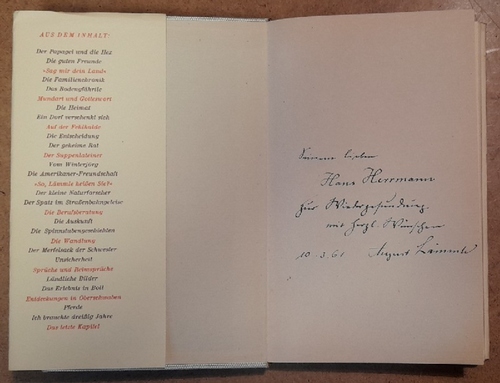 AUS DEM INHALT:
Der Papagei und die Hex
Die guten Freunde
»Sag mir dein Land«
Die Familienchronik
Das Bodengfährtle
Mundart und Gotteswort
Die Heimat
Ein Dorf verschenkt sich
Auf der Fohlhalde
Die Entscheidung
Der geheime Rat
Der Suppenlateiner
Vom Winterjörg
Die Amerikaner-Freundschaft
»So, Lämmle heißen Sie?«
Der kleine Naturforscher
Der Spatz im Straßenbahngeleise
Die Berufsberatung
Die Auskunft
Die Spitznabengeschichten
Die Wandlung
Der Merfelsack der Schwester
Unsicherheit
Sprüche und Reimsprüche
Ländliche Bilder
Das Erlebnis in Boll
Entdeckungen in Oberschwaben
Pferde
Ich brauchte dreißig Jahre
Das letzte Kapitel
Seinem lieben
Hans Herrmann
zur Wiedergesundung
mit herzl. Wünschen
10. 3. 61 August Lämmle